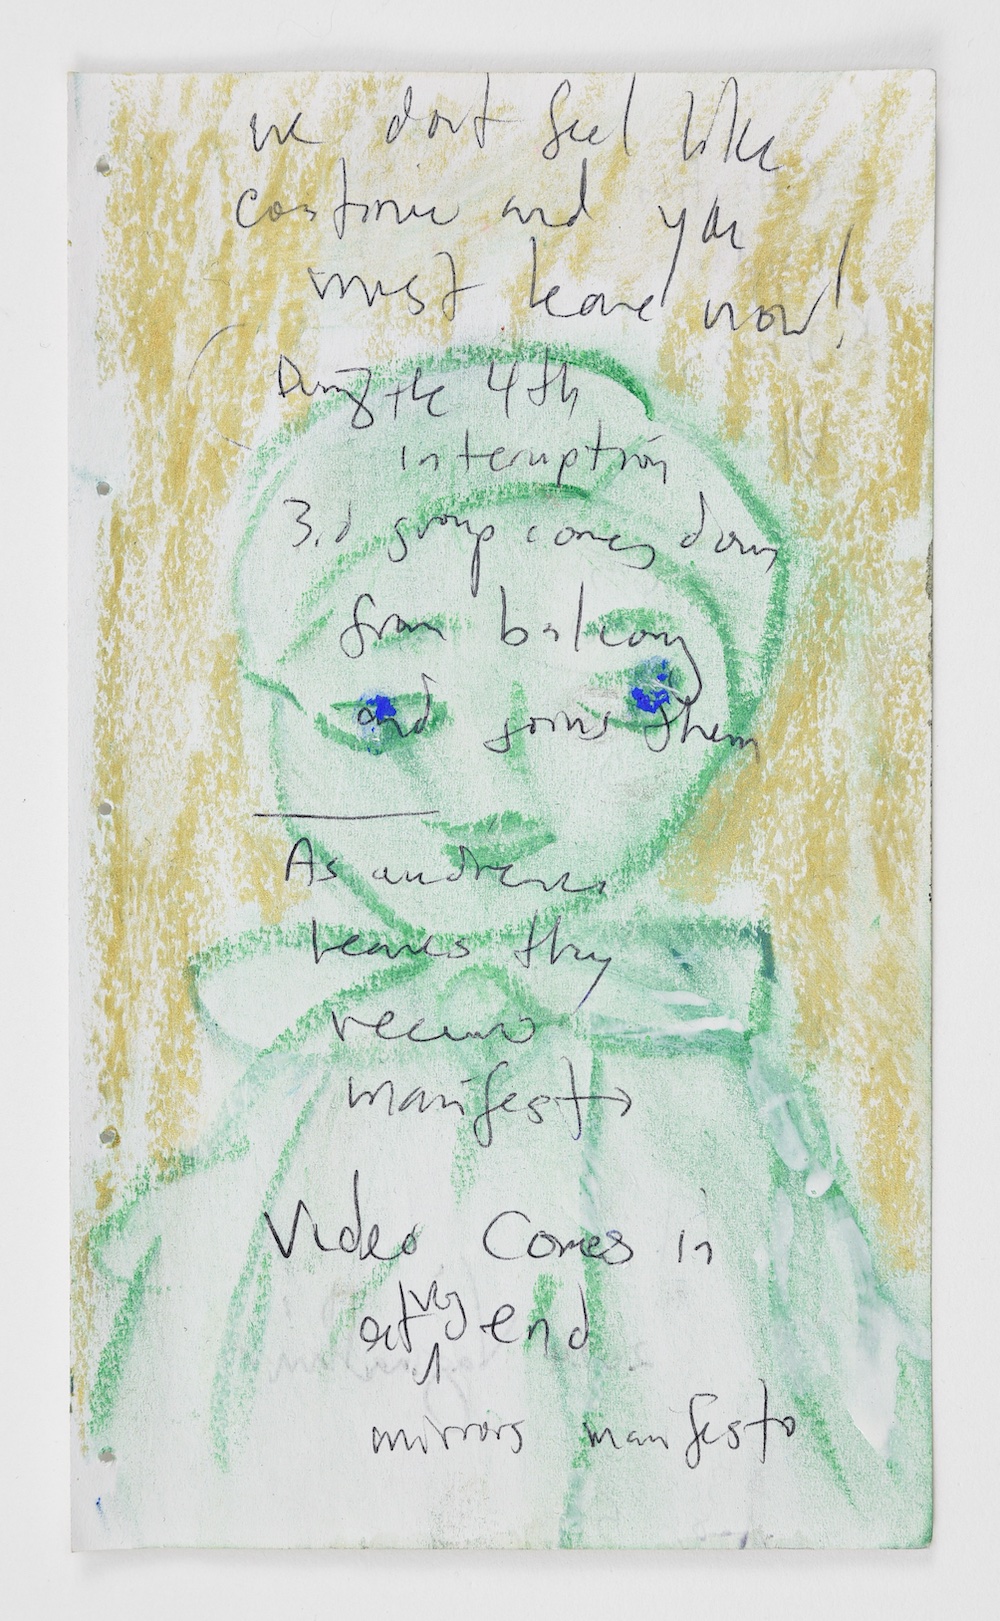 we dont feel like
continue and you
must leave now!
During the 4th
interruption
3.d group comes down
from balcony
and joins them
As audience
leaves they
receive
manifesto
Video comes in
at very end
mirrors manifesto